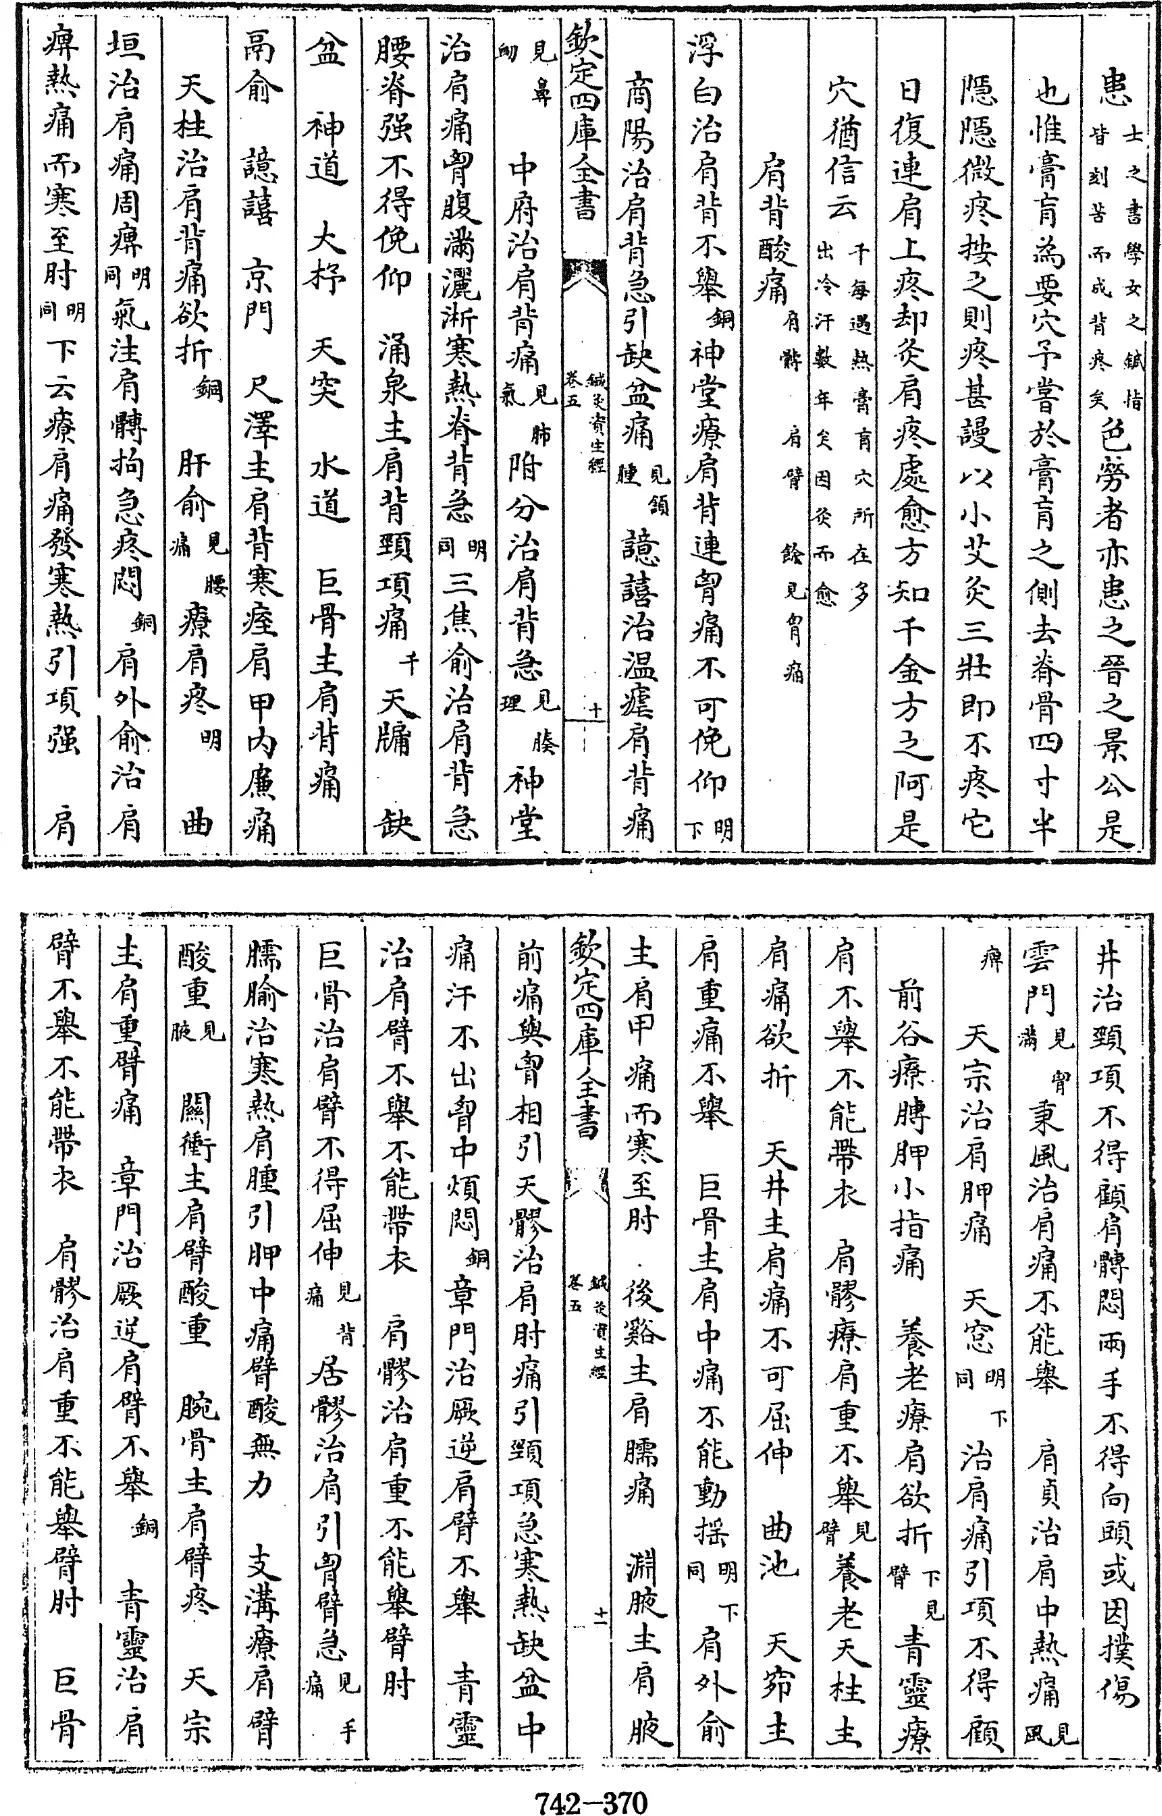 患士之書學女之鍼指皆刻苦而成背疼矣色勞者亦患之晉之景公是
也惟膏肓為要穴予嘗於膏肓之側去脊骨四寸半
隱隱微疼按之則疼甚謾以小艾灸三壯即不疼它
日復連肩上疼却灸肩疼處愈方知千金方之阿是
穴猶信云予每遇熱膏肓穴所在多出冷汗數年矣因灸而愈
肩背酸痛肩髆 肩臂 餘見胷痛
浮白治肩背不舉銅神堂療肩背連胷痛不可俛仰明下
商陽治肩背急引缺盆痛見頷腫 譩譆治温瘧肩背痛
欽定四庫全書 鍼灸資生經卷五 十
見鼻衂 中府治肩背痛見肺氣附分治肩背急見腠理神堂
治肩痛胷腹滿灑淅寒熱脊背急明同三焦俞治肩背急
腰脊强不得俛仰 涌泉主肩背頸項痛千天牖 缺
盆 神道 大杼 天突 水道 巨骨主肩背痛
鬲俞 譩譆 京門 尺澤主肩背寒痓肩甲内廉痛
天柱治肩背痛欲折銅 肝俞見腰痛療肩疼明 曲
垣治肩痛周痹明同氣注肩髆拘急疼悶銅肩外俞治肩
痹熱痛而寒至肘明同下云療肩痛發寒熱引項强 肩
井治頸項不得顧肩髆悶兩手不得向頭或因撲傷
雲門見胷滿秉風治肩痛不能舉 肩貞治肩中熱痛見風
痹 天宗治肩胛痛 天窓明下同 治肩痛引項不得顧
前谷療膊胛小指痛 養老療肩欲折下見臂青靈療
肩不舉不能帶衣 肩髎療肩重不舉見臂養老天柱主
肩痛欲折 天井主肩痛不可屈伸 曲池 天窌主
肩重痛不舉 巨骨主肩中痛不能動搖明下同 肩外俞
主肩甲痛而寒至肘 後谿主肩臑痛 淵腋主肩腋
欽定四庫全書 鍼灸資生經卷五 十一
前痛與胷相引天髎治肩肘痛引頸項急寒熱缺盆中
痛汗不出胷中煩悶銅章門治厥逆肩臂不舉 青靈
治肩臂不舉不能帶衣 肩髎治肩重不能舉臂肘
巨骨治肩臂不得屈伸見背痛居髎治肩引胷臂急見手痛
臑腧治寒熱肩腫引胛中痛臂酸無力 支溝療肩臂
酸重見腋 關衝主肩臂酸重 腕骨主肩臂疼 天宗
主肩重臂痛 章門治厥逆肩臂不舉銅 青靈治肩
臂不舉不能帶衣 肩髎治肩重不能舉臂肘 巨骨
742-370